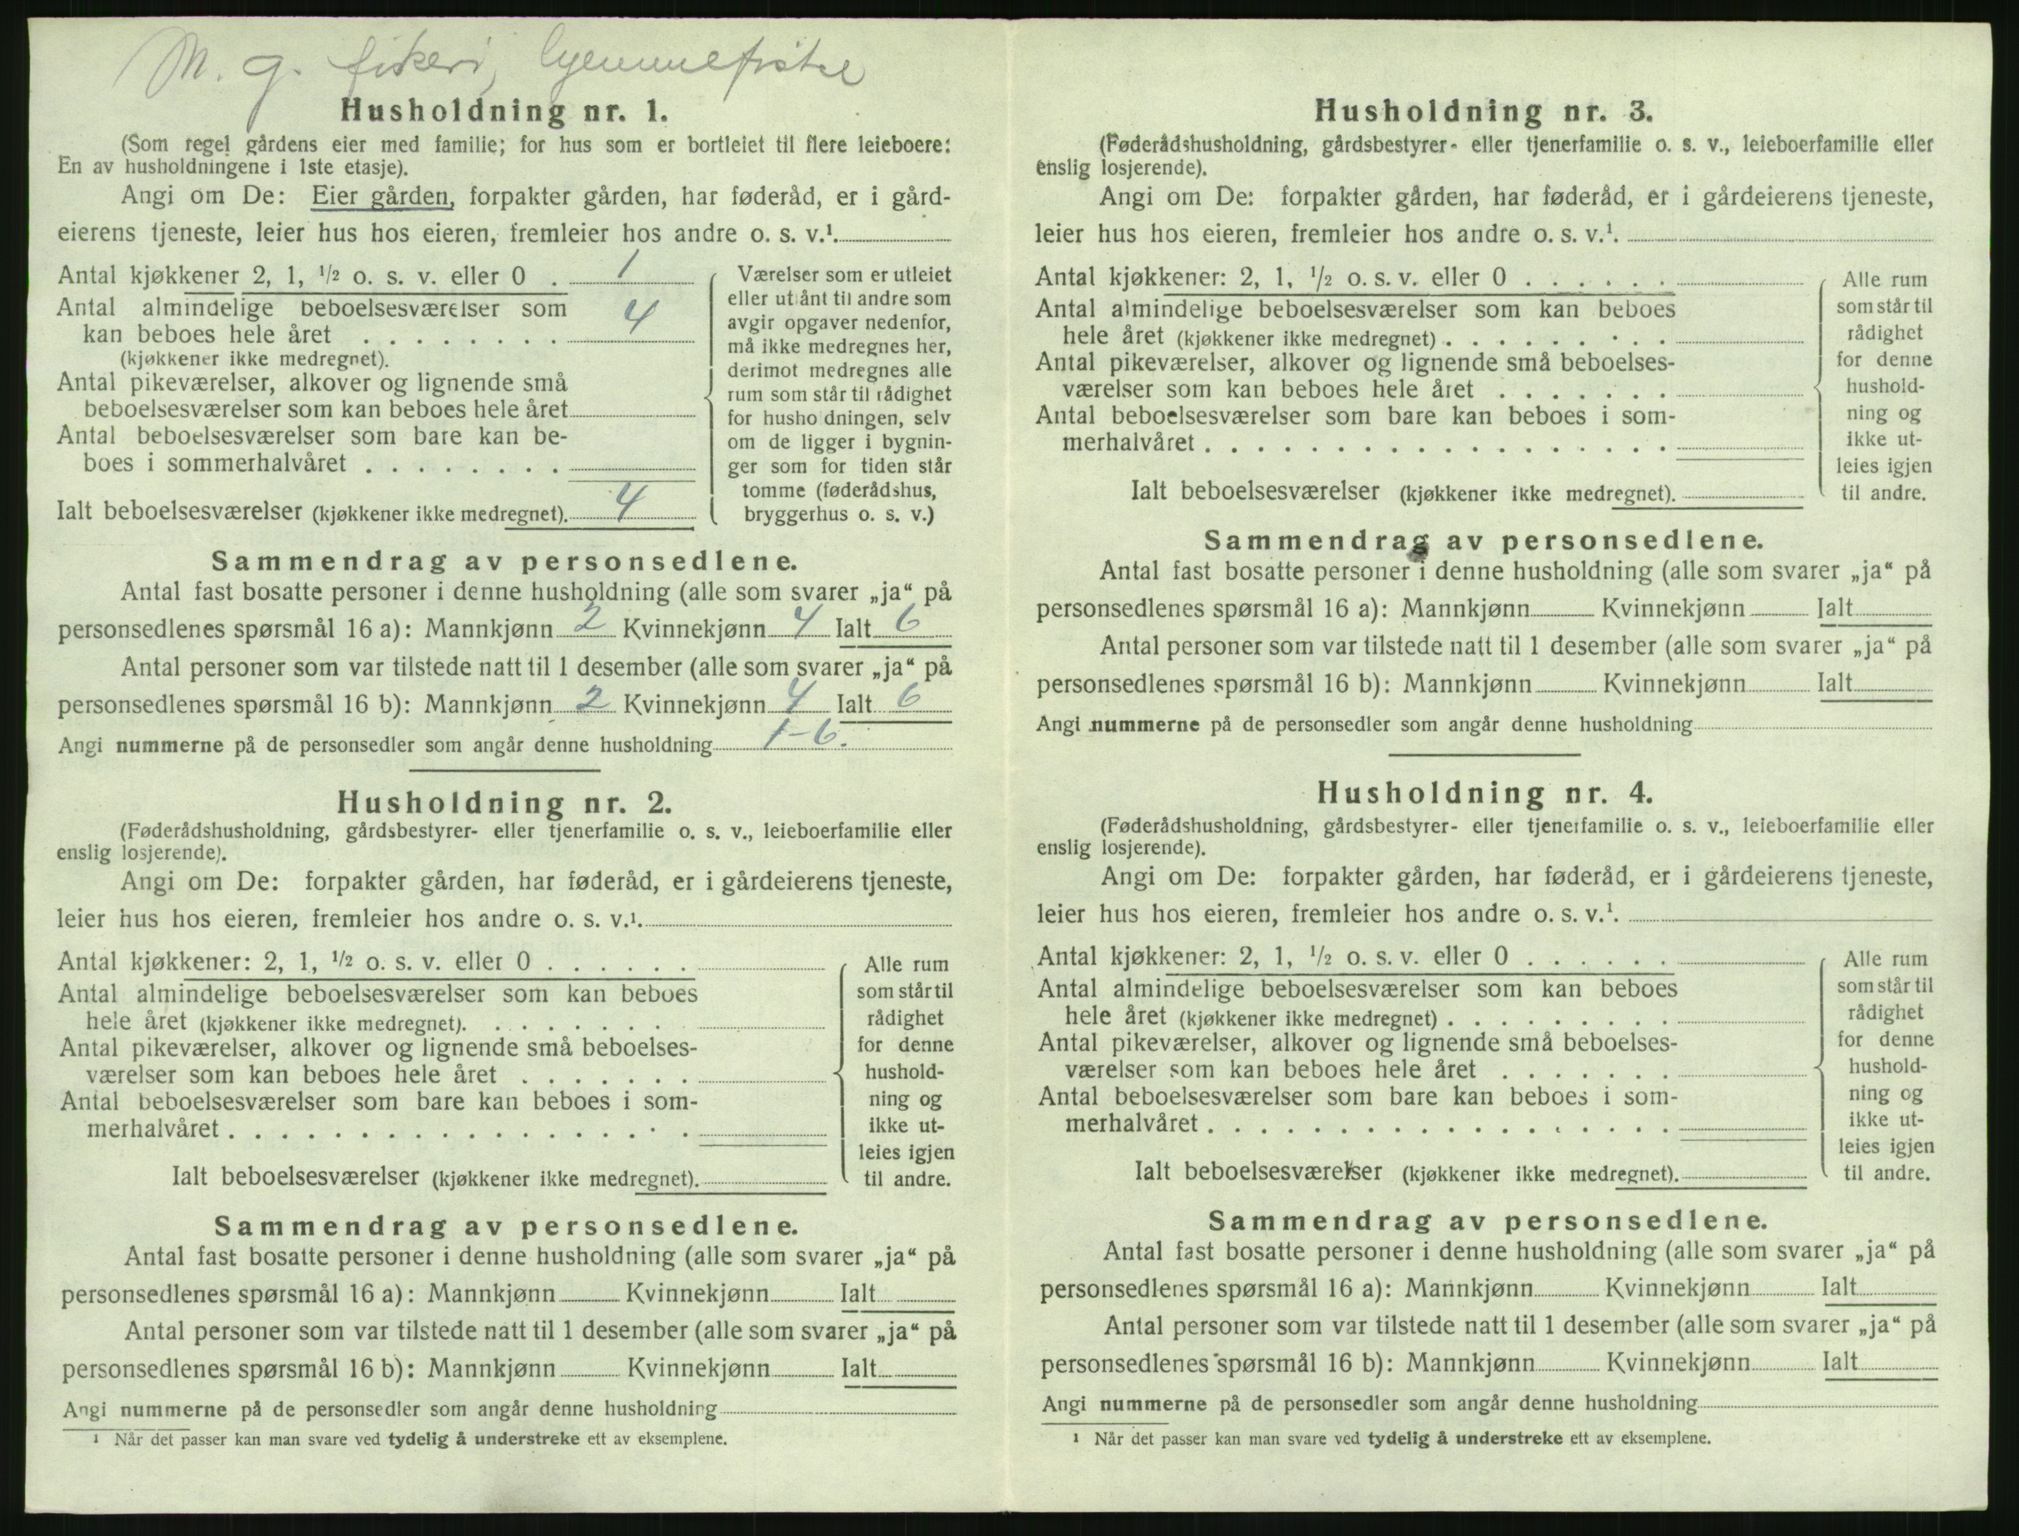 M. g. fiskeri, hjemmefiske
Husholdning nr. 1.
(Som regel gårdens eier med familie; for hus som er bortleiet til flere leieboere:
En av husholdningene i 1ste etasje).
Angi om De: Eier gården, forpakter gården, har føderåd, er i gård-
eierens tjeneste, leier hus hos eieren, fremleier hos andre o. s. v.¹.
Antal kjøkkener 2, 1, ½ o. s. v. eller 0 . 1
Antal almindelige beboelsesværelser som
kan beboes hele året . . . . . . . . 4
(kjøkkener ikke medregnet).
Antal pikeværelser, alkover og lignende små
beboelsesværelser som kan beboes hele året
Antal beboelsesværelser som bare kan be-
boes i sommerhalvåret . . . . . . . .
Ialt beboelsesværelser (kjøkkener ikke medregnet). 4
Værelser som er utleiet
eller utlånt til andre som
avgir opgaver nedenfor,
må ikke medregnes her,
derimot medregnes alle
rum som står til rådighet
for husholdningen, selv
om de ligger i bygnin-
ger som for tiden står
tomme (føderådshus,
bryggerhus o. s. v.)
Sammendrag av personsedlene.
Antal fast bosatte personer i denne husholdning (alle som svarer „ja“ på
personsedlenes spørsmål 16 a): Mannkjønn 2 Kvinnekjønn 4 Ialt 6
Antal personer som var tilstede natt til 1 desember (alle som svarer „ja“ på
personsedlenes spørsmål 16 b): Mannkjønn 2 Kvinnekjønn 4 Ialt 6
Angi nummerne på de personsedler som angår denne husholdning 1-6.
Husholdning nr. 2.
(Føderådshusholdning, gårdsbestyrer- eller tjenerfamilie o. s. v., leieboerfamilie eller
enslig losjerende).
Angi om De: forpakter gården, har føderåd, er i gårdeierens tjeneste,
leier hus hos eieren, fremleier hos andre o. s. v.¹.
Antal kjøkkener: 2, 1, ½ o. s. v. eller 0 . . . . . .
Antal almindelige beboelsesværelser som kan beboes
hele året (kjøkkener ikke medregnet). . . . . . . .
Antal pikeværelser, alkover og lignende små beboelses-
værelser som kan beboes hele året . . . . . . .
Antal beboelsesværelser som bare kan beboes i som-
merhalvåret . . . . . . . . . . . . . . . . . .
Ialt beboelsesværelser (kjøkkener ikke medregnet).
Alle rum
som står til
rådighet
for denne
hushold-
ning og
ikke ut-
leies igjen
til andre.
Sammendrag av personsedlene.
Antal fast bosatte personer i denne husholdning (alle som svarer „ja“ på
personsedlenes spørsmål 16 a): Mannkjønn Kvinnekjønn Ialt
Antal personer som var tilstede natt til 1 desember (alle som svarer „ja“ på
personsedlenes spørsmål 16 b): Mannkjønn Kvinnekjønn Ialt
Angi nummerne på de personsedler som angår denne husholdning
¹ Når det passer kan man svare ved tydelig å understreke ett av eksemplene.
Husholdning nr. 3.
(Føderådshusholdning, gårdsbestyrer- eller tjenerfamilie o. s. v., leieboerfamilie eller
enslig losjerende).
Angi om De: forpakter gården, har føderåd, er i gårdeierens tjeneste,
leier hus hos eieren, fremleier hos andre o. s. v.¹.
Antal kjøkkener: 2, 1, ½ o. s. v. eller 0 . . . . . .
Antal almindelige beboelsesværelser som kan beboes
hele året (kjøkkener ikke medregnet) . . . . . . . . .
Antal pikeværelser, alkover og lignende små beboelses-
værelser som kan beboes hele året . . . . . . .
Antal beboelsesværelser som bare kan beboes i som-
merhalvåret . . . . . . . . . . . . . . . . . .
Ialt beboelsesværelser (kjøkkener ikke medregnet).
Alle rum
som står til
rådighet
for denne
hushold-
ning og
ikke ut-
leies igjen
til andre.
Sammendrag av personsedlene.
Antal fast bosatte personer i denne husholdning (alle som svarer „ja“ på
personsedlenes spørsmål 16 a): Mannkjønn Kvinnekjønn Ialt
Antal personer som var tilstede natt til 1 desember (alle som svarer „ja“ på
personsedlenes spørsmål 16 b): Mannkjønn Kvinnekjønn Ialt
Angi nummerne på de personsedler som angår denne husholdning
Husholdning nr. 4.
(Føderådshusholdning, gårdsbestyrer- eller tjenerfamilie o. s. v., leieboerfamilie eller
enslig losjerende).
Angi om De: forpakter gården, har føderåd, er i gårdeierens tjeneste,
leier hus hos eieren, fremleier hos andre o. s. v.¹.
Antal kjøkkener: 2, 1, ½ o. s. v. eller 0 . . . . . .
Antal almindelige beboelsesværelser som kan beboes
hele året (kjøkkener ikke medregnet) . . . . . . . . .
Antal pikeværelser, alkover og lignende små beboelses-
værelser som kan beboes hele året . . . . . . .
Antal beboelsesværelser som bare kan beboes i som-
merhalvåret . . . . . . . . . . . . . . . . . .
Ialt beboelsesværelser (kjøkkener ikke medregnet).
Alle rum
som står til
rådighet
for denne
hushold-
ning og
ikke ut-
leies igjen
til andre.
Sammendrag av personsedlene.
Antal fast bosatte personer i denne husholdning (alle som svarer „ja“ på
personsedlenes spørsmål 16 a): Mannkjønn Kvinnekjønn Ialt
Antal personer som var tilstede natt til 1 desember (alle som svarer „ja“ på
personsedlenes spørsmål 16 b): Mannkjønn Kvinnekjønn Ialt
Angi nummerne på de personsedler som angår denne husholdning
¹ Når det passer kan man svare ved tydelig å understreke ett av eksemplene.